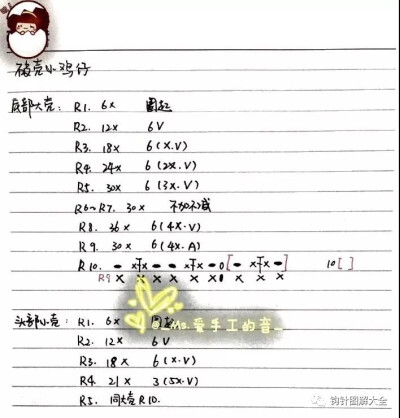 破壳小鸡仔
底部大壳: R1. 6x 圈起
R2. 12x 6V
R3. 18x 6(x.v)
R4. 24x 6(2x.v)
R5. 30x 6(3x.v)
R6~R7. 30x 不加不减
R8. 36x 6(4x.v)
R9. 30x 6(4x.A)
R10. 10[ ]
R9 x x x x x x x 0 x x x x
头部小壳: R1. 6x 圈起
Ms.爱手工的音
R2. 12x 6V
R3. 18x 6(x.v)
R4. 21x 3(5x.V)
R5. 同大壳R10.
钩针图解大全